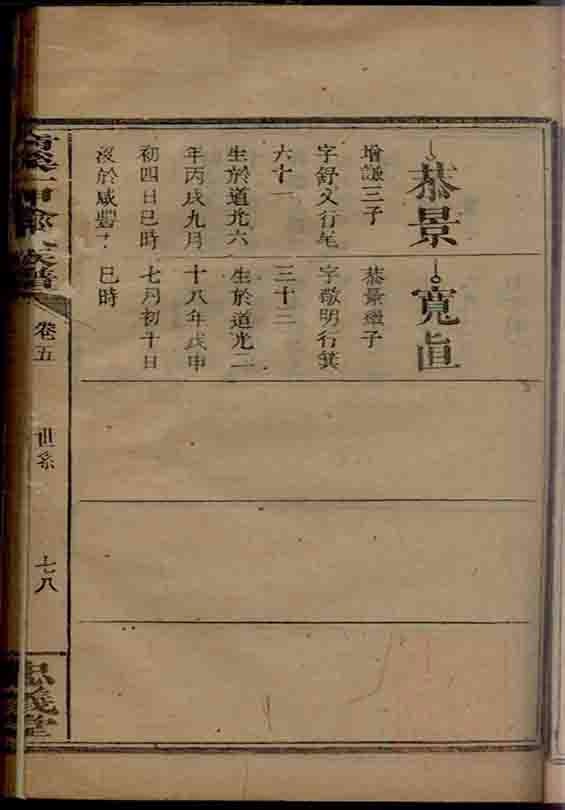 恭景
增謙三子
字舒文行
六十一
生於道光六
年丙戌九月
初四日巳時
歿於咸豐十
寬眞
恭景繼子
字敬明行箕
三十二
生於道光二
十八年戊申
七月初十日
巳時
族譜
卷五
世系
七八
忠義堂